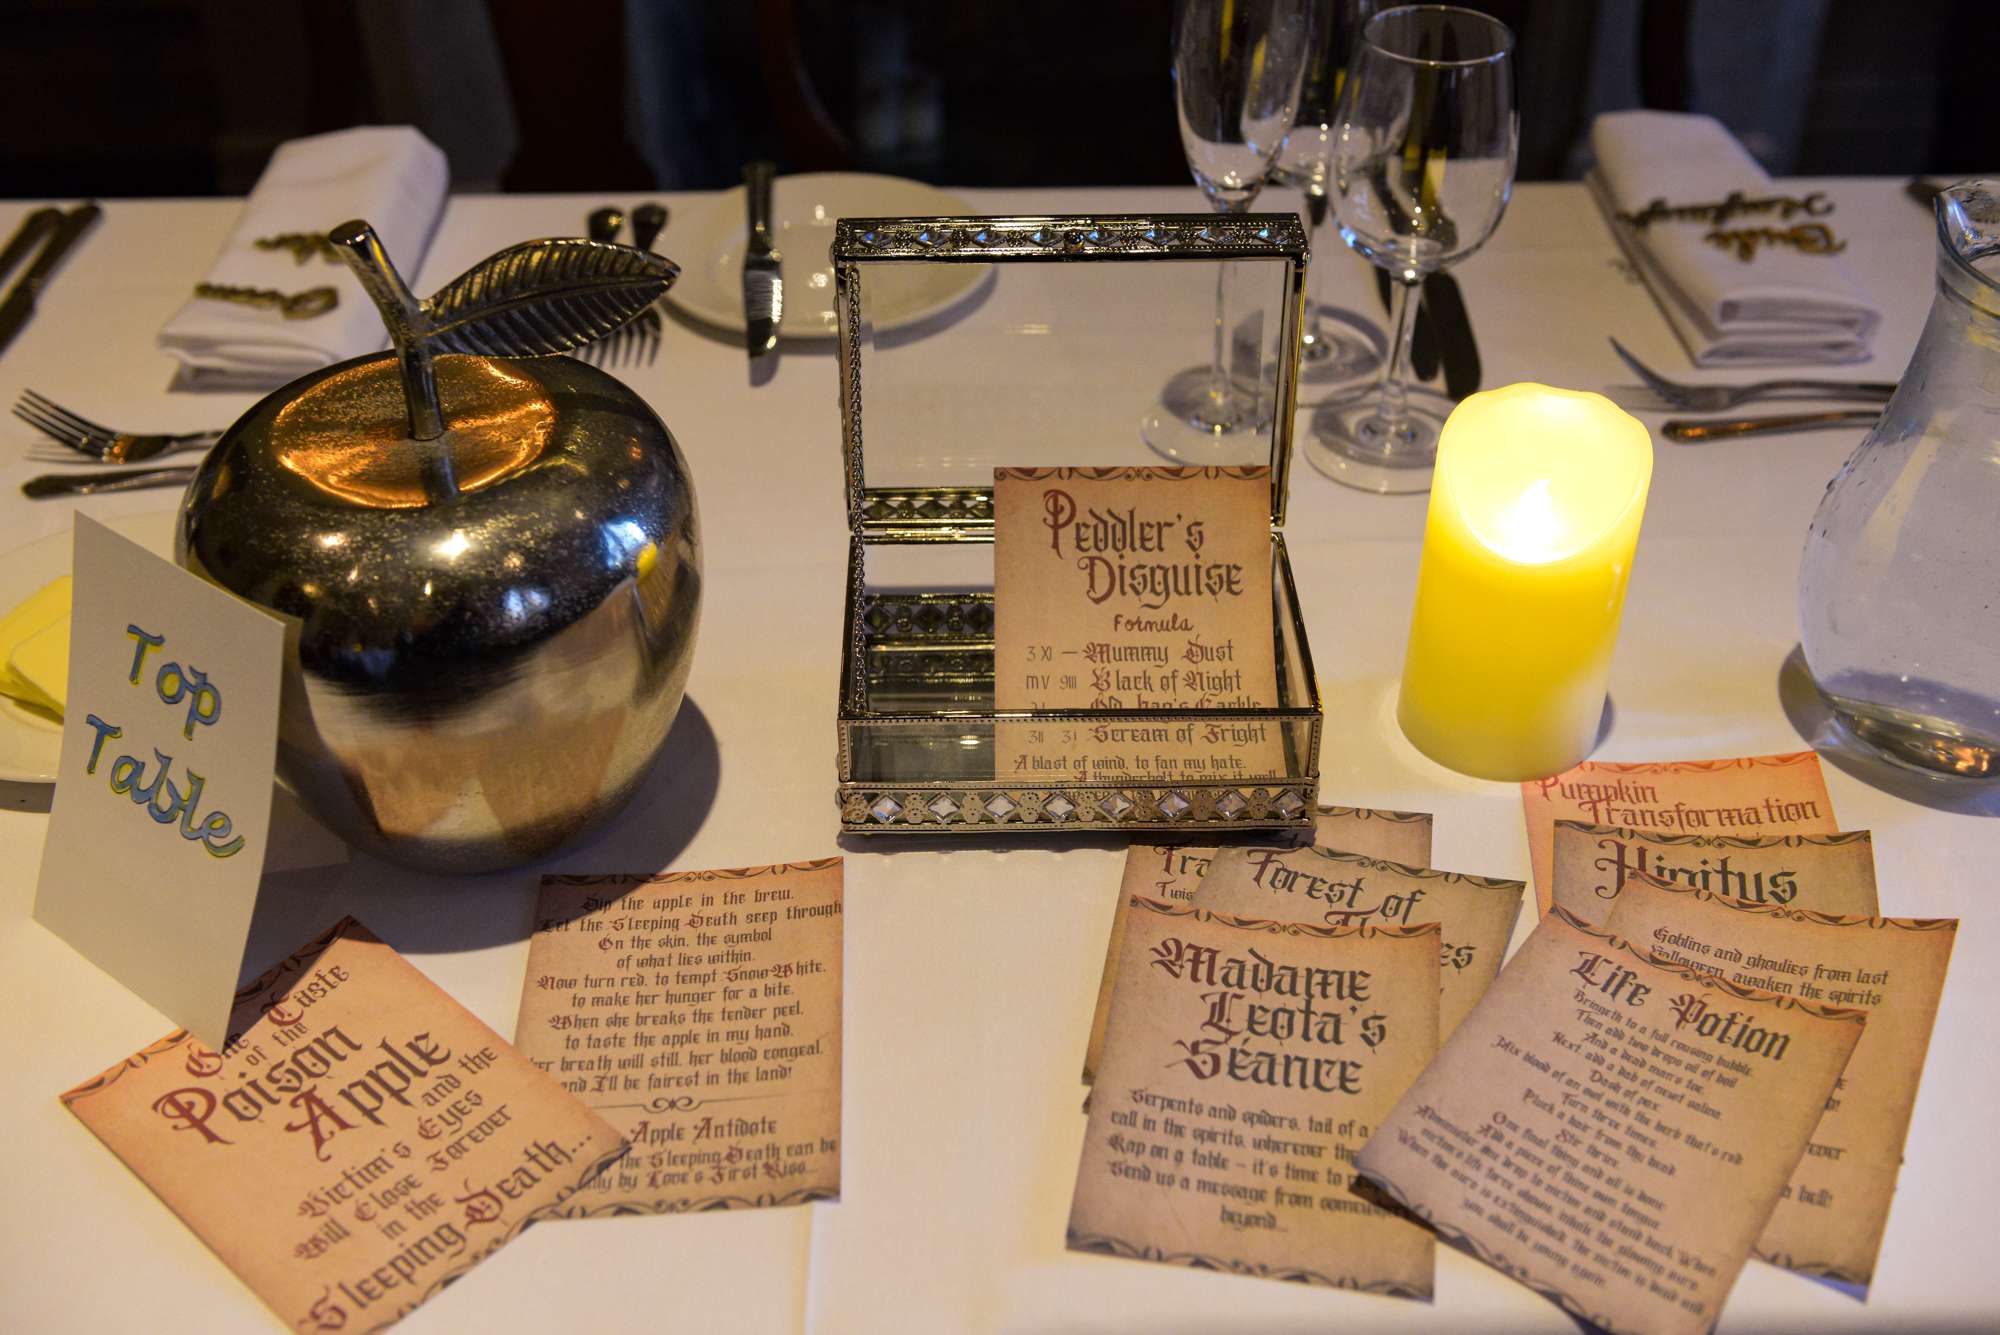 Bride
Top
Table
Peddler's
Disguise
Formula
3 XI — Mummy Dust
mV 9III Black of Night
Old Hag's Cackle
3II 3I Scream of Fright
A blast of wind, to fan my hate.
A thunderbolt to mix it well
One Taste
of the
Poison
Apple
and the
Victim's Eyes
Will Close Forever
in the
Sleeping Death...
Dip the apple in the brew.
Let the Sleeping Death seep through
On the skin, the symbol
of what lies within.
Now turn red, to tempt Snow White,
to make her hunger for a bite.
When she breaks the tender peel,
to taste the apple in my hand,
her breath will still, her blood congeal,
and I'll be fairest in the land!
Apple Antidote
the Sleeping Death can be
only by Love's First Kiss...
Tra
Twis
Forest of
es
Madame
Leota's
Séance
Serpents and spiders, tail of a
call in the spirits, wherever the
Rap on a table – it's time to
Send us a message from somewhere
beyond...
Pumpkin
Transformation
Goblins and ghoulies from last
Halloween, awaken the spirits
ever
a bell!
Life Potion
Bringeth to a full rousing bubble.
Then add two drops oil of boil
And a dead man's toe.
Next add a dab of newt saliva.
Dash of pox
Mix blood of an owl with the herb that's red
Turn three times,
Pluck a hair from thy head
Stir thrice.
One final thing and all is done:
Add a piece of thine own tongue.
Administer one drop to victim and stand back. When
victim's life force shows, inhale the glowing aura.
When the aura is extinguished, the victim is dead and
you shall be young again.